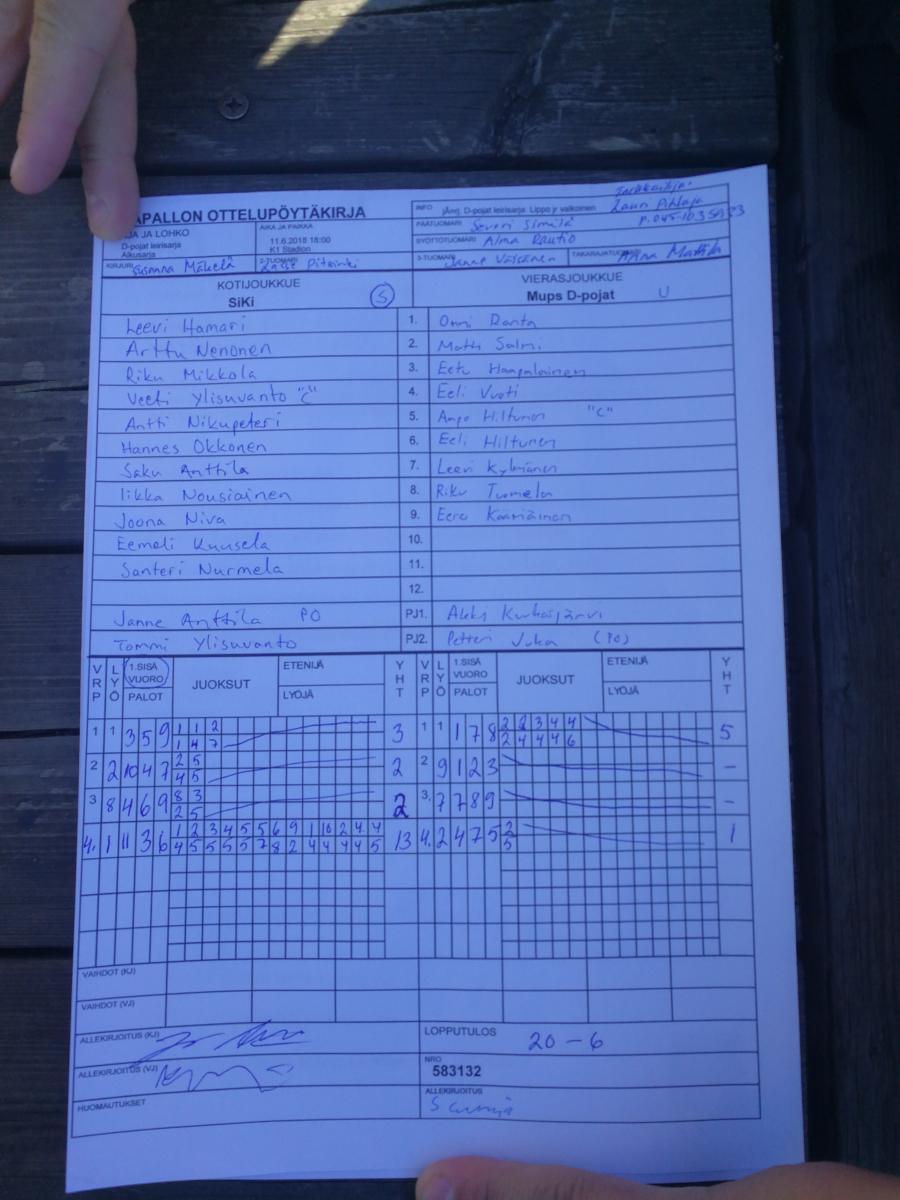 APALLON OTTELUPÖYTÄKIRJA
JA JA LOHKO
D-pojat leirisarja
Alkusarja
AIKA JA PAIKKA
11.6.2018 18:00
K1 Stadion
INFO järej. D-pojat leirisarja Lippo jr valkoinen
Lauri Pihlaja
PÄÄTUOMARI Severi Similä
SYÖTTÖTUOMARI Alma Rautio
KIRJURI Susanna Mäkelä
2-TUOMARI Lasse
3-TUOMARI Janne Väisänen
TAKARAJATUOMARI Anna Mattila
KOTIJOUKKUE
SiKi S
VIERASJOUKKUE
Mups D-pojat U
Leevi Hamari 1. Onni Ranta
Arttu Nenonen 2. Matti Salmi
Riku Mikkola 3. Eetu Haapalainen
Veeti Ylisuvanto "C" 4. Eeli Vuoti
Antti Nikupeteri 5. Hiltunen "C"
Hannes Okkonen 6. Eeli Hiltunen
Saku Anttila 7. Leevi Kylmänen
Iikka Nousiainen 8. Riku Tuomela
Joona Niva 9. Eero Kääriäinen
Eemeli Kuusela 10.
Santeri Nurmela 11.
12.
Janne Anttila PO PJ1. Aleksi Kurkijärvi
Tommi Ylisuvanto PJ2. Petteri Juka (PO)
VRP LYÖ 1.SISÄ VUORO PALOT JUOKSUT ETENIJÄ LYÖJÄ YHT VRP LYÖ 1.SISÄ VUORO PALOT JUOKSUT ETENIJÄ LYÖJÄ YHT
1 1 3 5 9 1 1 2 3 1 1 1 7 8 2 2 3 4 4 5
1 4 7 2 4 4 4 6
2 2 10 4 7 2 5 2 2 9 1 2 3 –
4 5
3 8 4 6 9 8 3 2 3. 7 7 8 9 –
2 5
4. 1 11 3 6 1 2 3 4 5 5 6 9 1 10 2 4 4 13 4. 2 4 7 5 2 1
4 5 5 5 5 7 8 2 4 4 4 4 5 5
VAIHDOT (KJ)
VAIHDOT (VJ)
ALLEKIRJOITUS (KJ)
LOPPUTULOS 20 – 6
ALLEKIRJOITUS (VJ)
NRO
583132
HUOMAUTUKSET
ALLEKIRJOITUS